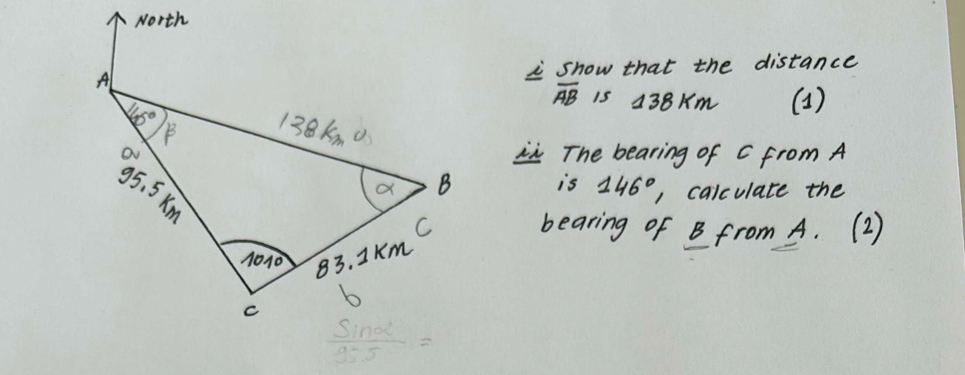 North
A
i Show that the distance
AB is 138 Km (1)
β
138 Km
ii The bearing of C from A
is 146°, calculate the
bearing of B from A. (2)
a
95.5 Km
α
B
C
101°
83.1 KM
b
C
Sinα
95.5
=